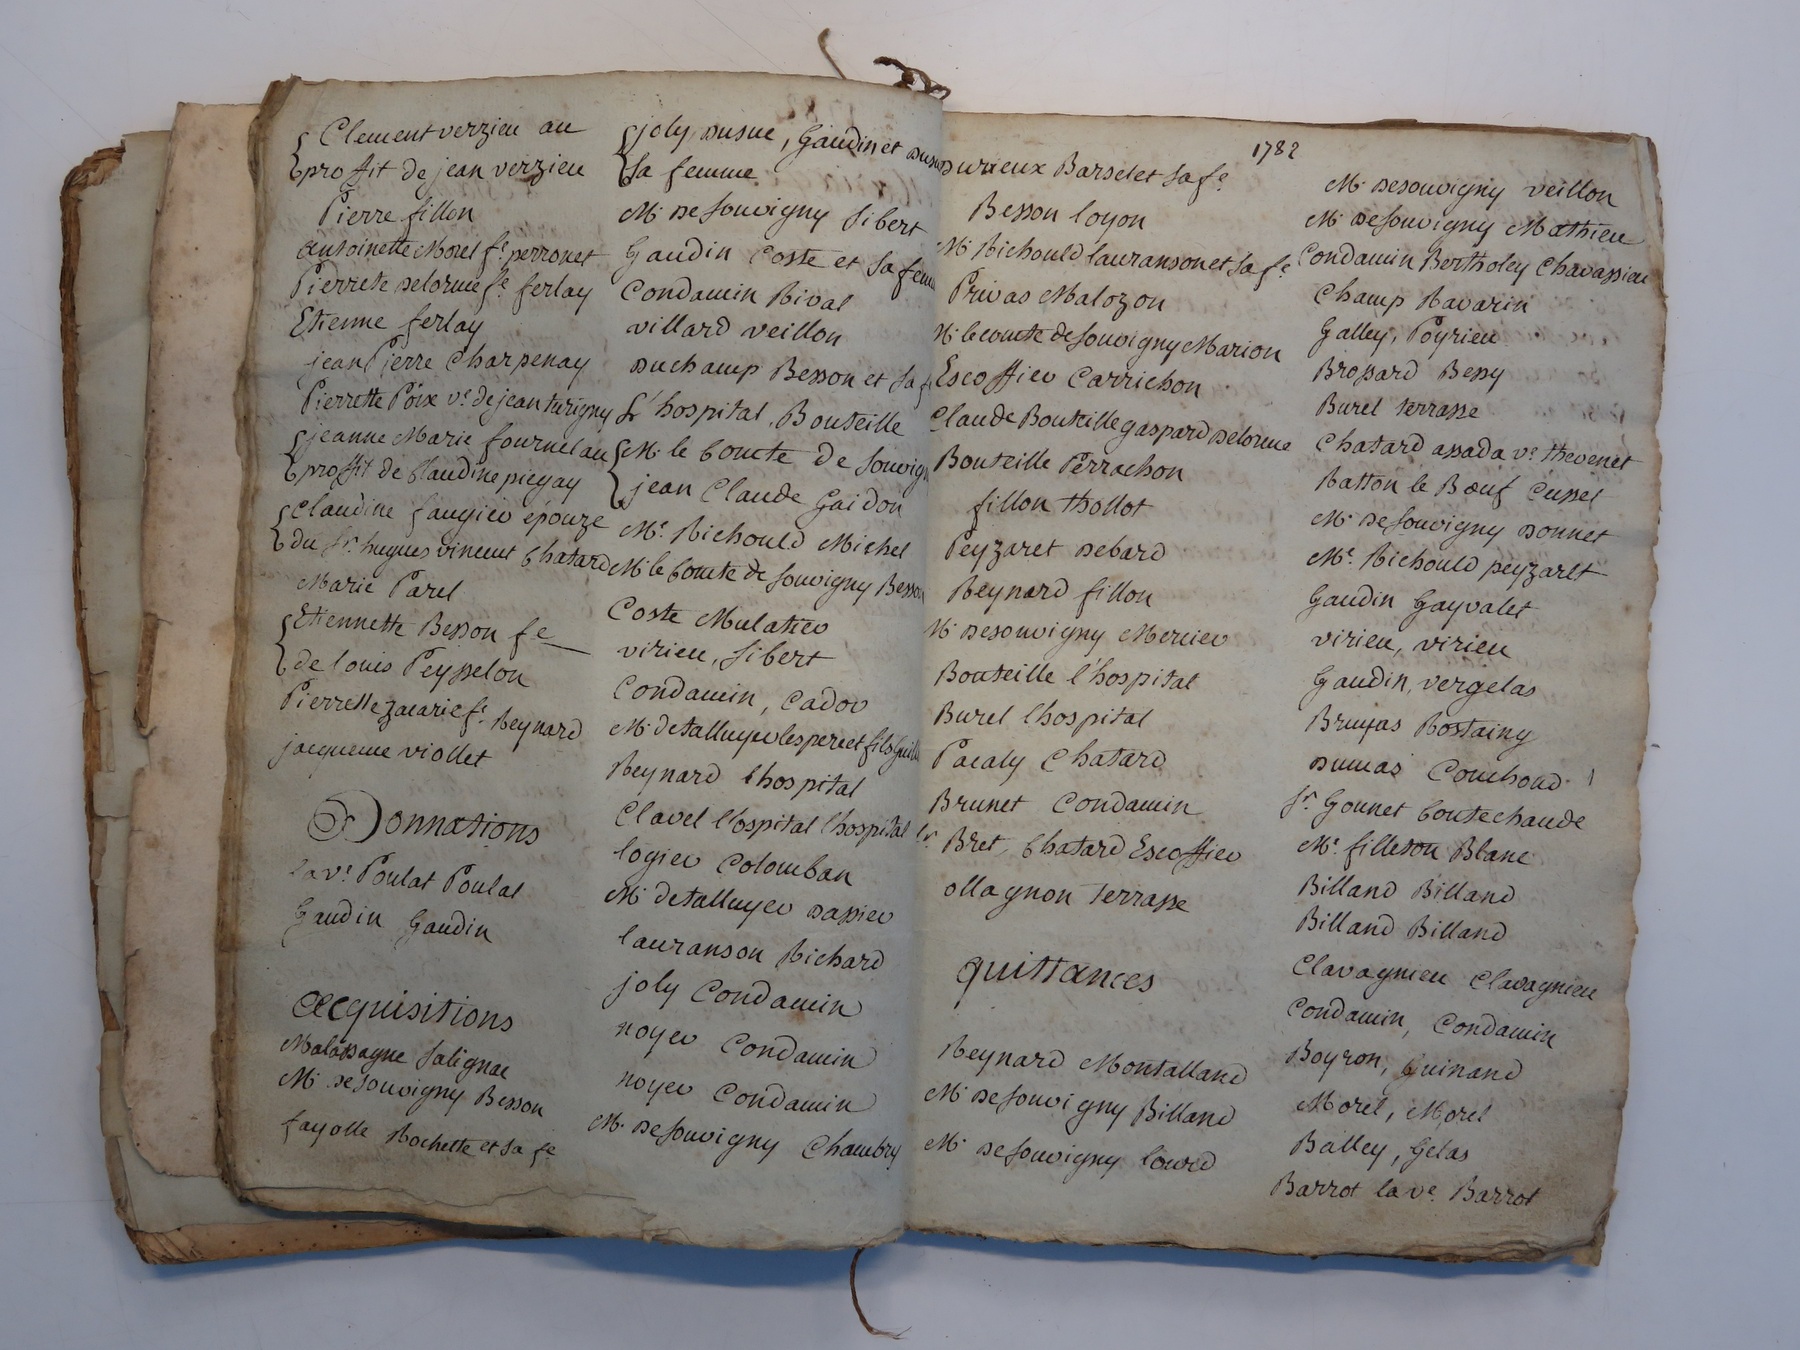 Clement verzieu au
proffit de jean verzieu
Pierre fillon
antoinette Morel fe. perronet
Pierrette delorme fe. ferlay
Etienne ferlay
jean Pierre Charpenay
Pierrette Poix ve. de jean turigny
jeanne Marie fournel au
proffit de Claudine piegay
Claudine faugier épouze
du Sr. hugues vincent Chatard
Marie Parel
Etiennette Besson fe
de louis Peysselon
Pierrette zacarie fe. Reynard
jacqueme viollet
Donnations
la ve. Poulat Poulat
Gaudin Gaudin
acquisitions
Malassagne Salignac
Mr. de Souvigny Besson
fayolle Rochette et sa fe
joly dusue, Gaudin et
sa femme
Mr. de Souvigny Sibert
Gaudin Coste et sa
Condamin Rival
villard veillon
duchamp Besson et sa
L'hospital, Bouteille
Mr. le Comte de
jean Claude Gaidon
Mr. Richould Michel
Mr. le Comte de Souvigny Besson
Coste Mulatier
virieu, Sibert
Condamin, Cador
Mr. de talluyer les pere et fils
Reynard lhospital
Clavel l'ospital lhospital
logier Colomban
Mr. de talluyer dassier
lauranson Richard
joly Condamin
noyer Condamin
noyer Condamin
Mr. de Souvigny Chambry
1782
durieux Barselet sa fe.
Besson loyon
Mr. Richould lauranson et sa fe
Privas Malozon
Mr. le comte de Souvigny Marion
Escoffier Carrichon
Claude Bouteille gaspard delorme
Bouteille Perrachon
fillon thollot
Peyzaret debard
Reynard fillon
Mr. desouvigny Mercier
Bouteille l'hospital
Burel lhospital
Pacaly Chatard
Brunet Condamin
Sr. Bret, Chatard Escoffier
ollagnon terrasse
quittances
Reynard Montalland
Mr. de Souvigny Billand
Mr. de Souvigny
Mr. desouvigny veillon
Mr. de Souvigny Mathieu
Condamin Bertholey Chavassieu
Champ Ravarin
Galley, Poyrieu
Brossard Bessy
Burel terrasse
Chatard assada ve. thevenet
Ratton le Bœuf Cusset
Mr. de Souvigny donnet
Mr. Richould peyzaret
Gaudin Gayvalet
virieu, virieu
Gaudin, vergelas
Bruyas Rostaing
dumas Couchoud
Sr. Gonnet Coutechaude
Mr. filleson Blanc
Billand Billand
Billand Billand
Clavagnieu Clavagnieu
Condamin, Condamin
Boyron, Guinand
Morel, Morel
Balley, Gelas
Barrot la ve. Barrot